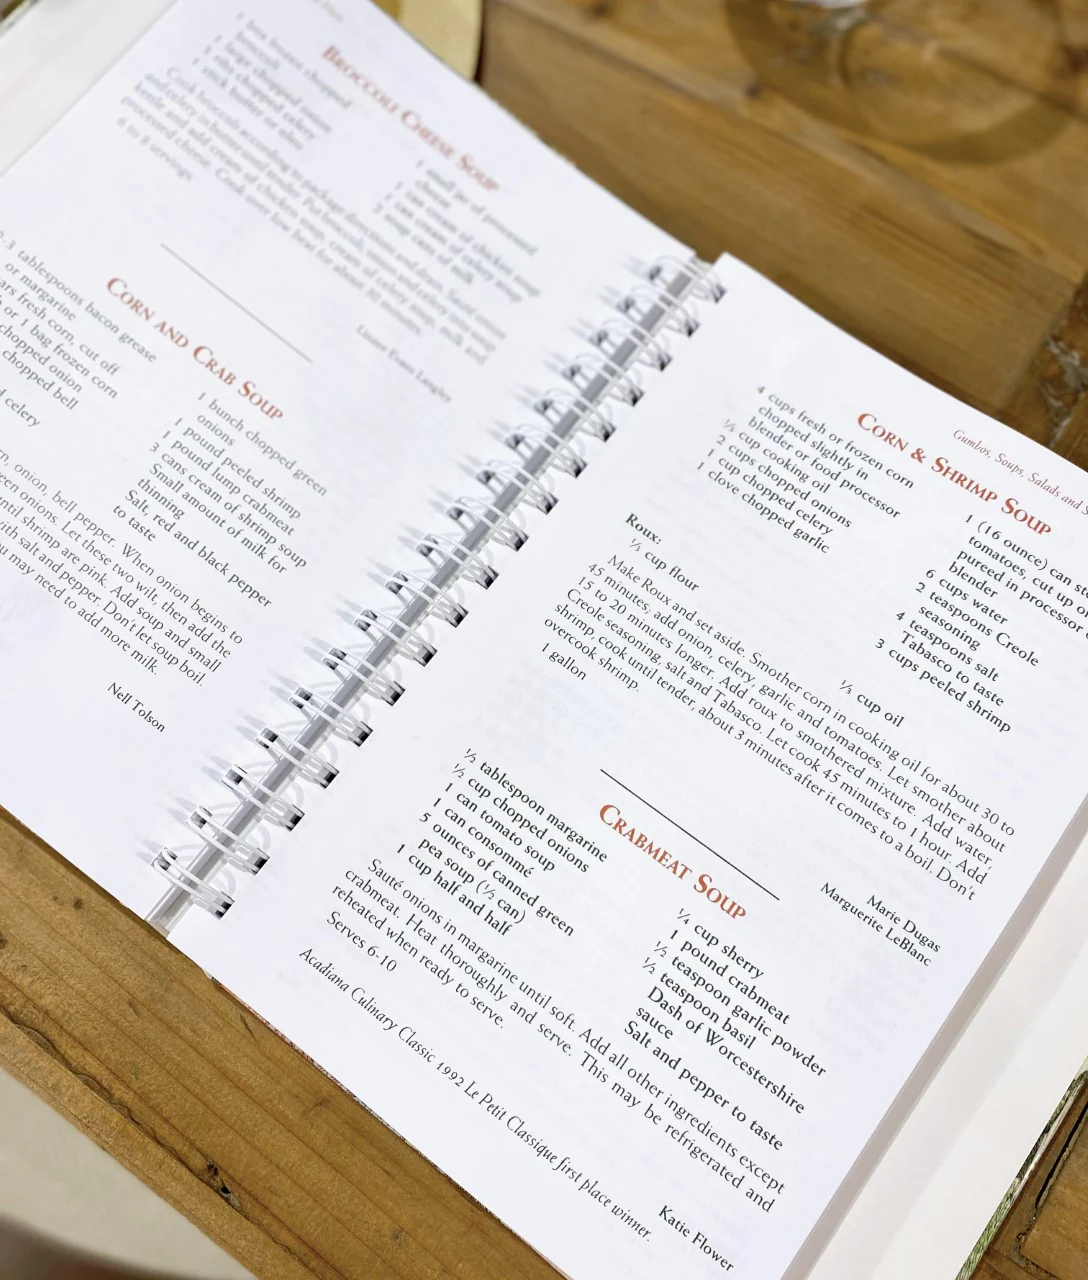 BROCCOLI CHEESE SOUP
1 box frozen chopped
broccoli
1 large chopped onion
1 rib chopped celery
1 stick butter or oleo
1 small jar of processed
cheese
1 can cream of chicken soup
1 can cream of celery soup
2 soup cans of milk
Cook broccoli according to package directions and drain. Sauté onion
and celery in butter until tender. Put broccoli, onion and celery into
kettle and add cream of chicken soup, cream of celery soup, milk and
processed cheese. Cook over low heat for about 30 minutes.
6 to 8 servings
CORN AND CRAB SOUP
3 tablespoons bacon grease
or margarine
ears fresh corn, cut off
or 1 bag frozen corn
chopped onion
chopped bell
celery
1 bunch chopped green
onions
1 pound peeled shrimp
1 pound lump crabmeat
3 cans cream of shrimp soup
Small amount of milk for
thinning
Salt, red and black pepper
to taste
onion, bell pepper. When onion begins to
green onions. Let these two wilt, then add the
until shrimp are pink. Add soup and small
with salt and pepper. Don't let soup boil.
you may need to add more milk.
Nell Tolson
Gumbos, Soups, Salads and
CORN & SHRIMP SOUP
4 cups fresh or frozen corn
chopped slightly in
blender or food processor
⅓ cup cooking oil
2 cups chopped onions
1 cup chopped celery
1 clove chopped garlic
1 (16 ounce) can
tomatoes, cut up or
pureed in processor
blender
6 cups water
2 teaspoons Creole
seasoning
4 teaspoons salt
Tabasco to taste
3 cups peeled shrimp
Roux:
⅓ cup flour
⅓ cup oil
Make Roux and set aside. Smother corn in cooking oil for about 30 to
45 minutes, add onion, celery, garlic and tomatoes. Let smother about
15 to 20 minutes longer. Add roux to smothered mixture. Add water,
Creole seasoning, salt and Tabasco. Let cook 45 minutes to 1 hour. Add
shrimp, cook until tender, about 3 minutes after it comes to a boil. Don't
overcook shrimp.
1 gallon
Marie Dugas
Marguerite LeBlanc
CRABMEAT SOUP
½ tablespoon margarine
½ cup chopped onions
1 can tomato soup
1 can consommé
5 ounces of canned green
pea soup (½ can)
1 cup half and half
¼ cup sherry
1 pound crabmeat
½ teaspoon garlic powder
½ teaspoon basil
Dash of Worcestershire
sauce
Salt and pepper to taste
Sauté onions in margarine until soft. Add all other ingredients except
crabmeat. Heat thoroughly and serve. This may be refrigerated and
reheated when ready to serve.
Serves 6-10
Katie Flower
Acadiana Culinary Classic 1992 Le Petit Classique first place winner.